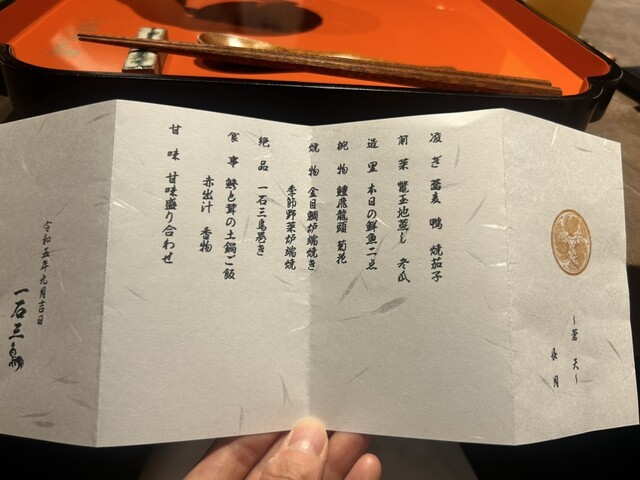 ～蒼天～
長月
凌ぎ 蕎麦 鴨 焼茄子
前菜 鼈玉地蒸し 冬瓜
造里 本日の鮮魚二点
椀物 鱧飛龍頭 菊花
焼物 金目鯛炉端焼き
季節野菜炉端焼
絶品 一石三鳥巻き
食事 鮗と茸の土鍋ご飯
赤出汁 香物
甘味 甘味盛り合わせ
令和五年九月吉日
一石三鳥